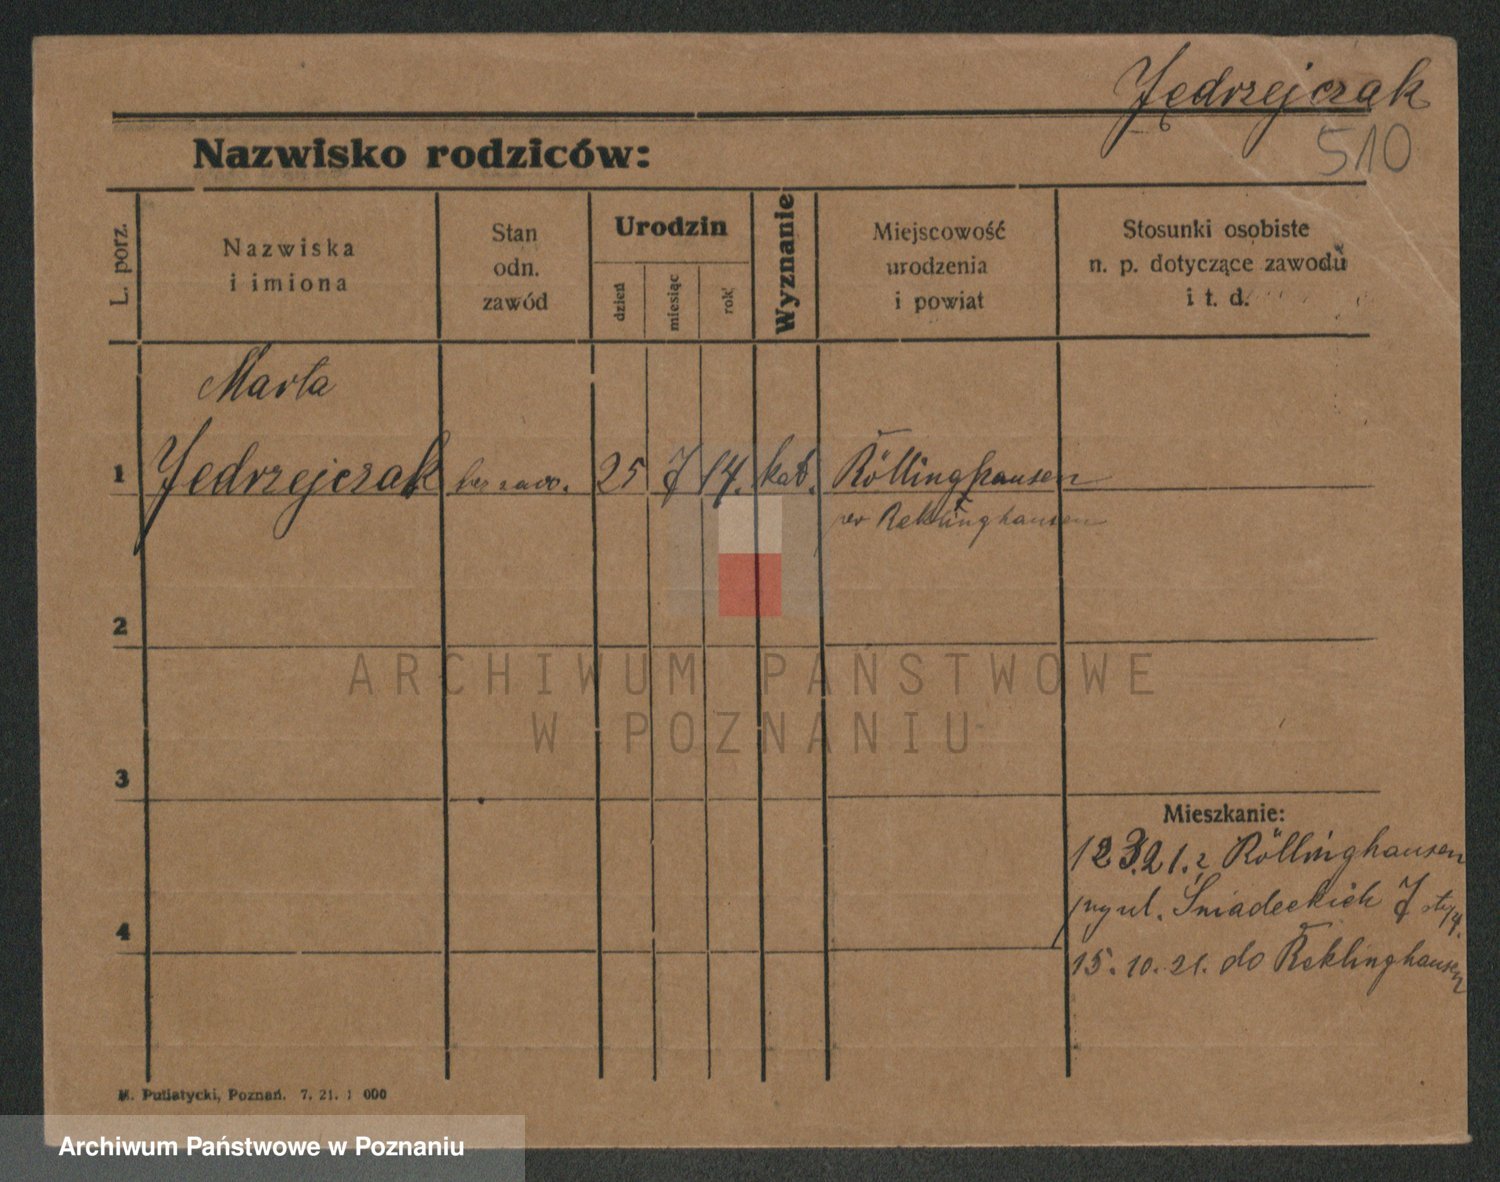 Jędrzejczak
510
Nazwisko rodziców:
L. porz.
Nazwiska
i imiona
Stan
odn.
zawód
Urodzin
dzień
miesiąc
rok
Wyznanie
Miejscowość
urodzenia
i powiat
Stosunki osobiste
n. p. dotyczące zawodu
i t. d.
Marta
1 Jedrzejczak bez zawo. 25 7 14. kat. Röllinghausen
Reklinghausen
2
ARCHIWUM PAŃSTWOWE
W POZNANIU
3
Mieszkanie:
21. z Röllinghausen
ul. Śniadeckich 7
4
15. 10. 21. do Reklinghausen
M. Putiatycki, Poznań. 7. 21. 1 000
Archiwum Państwowe w Poznaniu